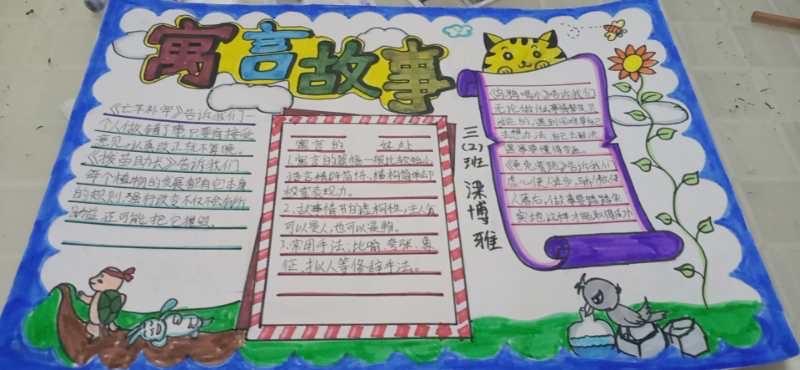 寓言故事
《亡羊补牢》告诉我们一
个人做错了事只要肯接受
意见,认真改正就不算晚。
《拔苗助长》告诉我们
每个植物的发展都有它本身
的规则,强行改变不仅不会有所
还可能把它摧毁。
寓言的
1.寓言的篇幅一般比较短小,
语言精辟简练,结构简单却
极富表现力。
2.故事情节的虚构性,主人公
可以是人,也可以是物。
3.常用手法,比喻、夸张、象
征、拟人等修辞手法。
三(2)班 梁博雅
《乌鸦喝水》告诉我们
无论做什事情都要
遇到困难要
想办法
《龟兔赛跑》告诉我们
虚心使人进步,骄傲使
人落后,做事要踏踏
实地,这样才能取得成功